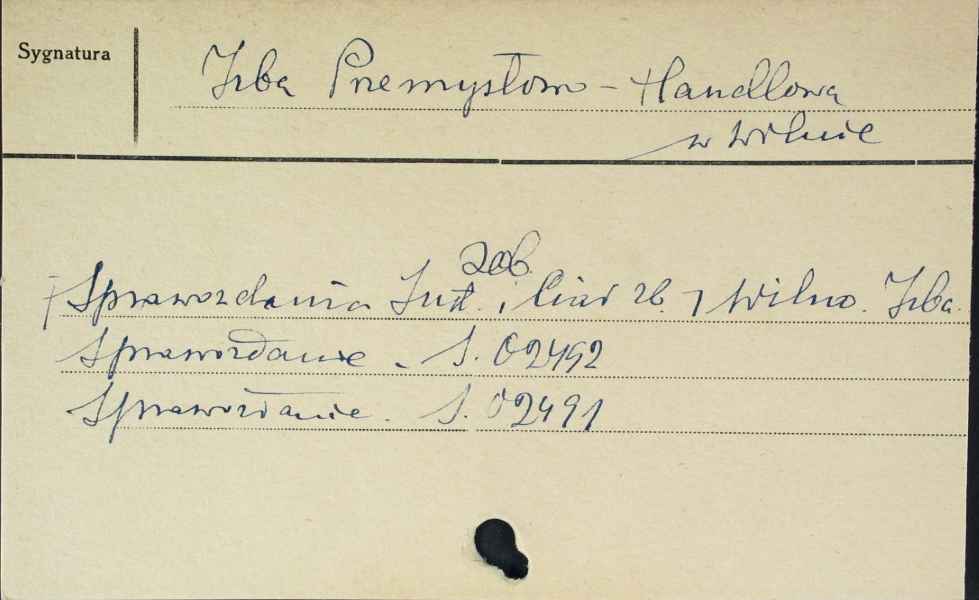 Sygnatura
Izba Przemysłowo-Handlowa
w Wilnie
zob.
[Sprawozdania Inst. i Ciał zb.] Wilno. Izba.
Sprawozdanie. S. 02492
Sprawozdanie. S. 02491